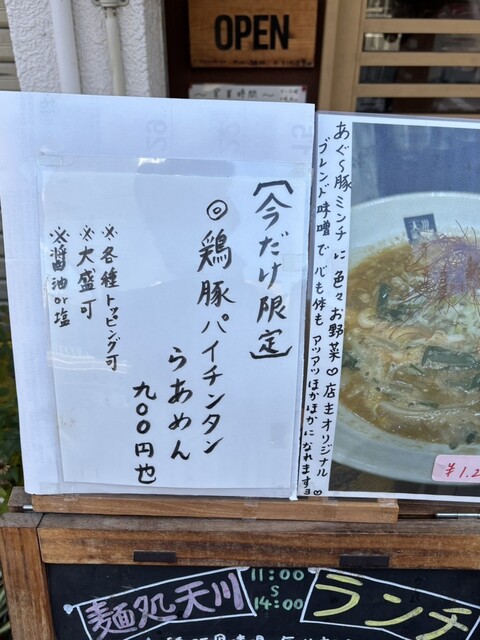 OPEN
営業時間
【今だけ限定】
◎鶏豚パイチンタン
らあめん
九〇〇円也
※各種トッピング可
※大盛可
※醤油or塩
あぐ〜豚ミンチに色々お野菜♡店主オリジナル
ブレンド味噌で心も体もアツアツほかほかになれますヨ♡
天川
¥1.2
麺処天川
11:00
S
14:00
ランチ